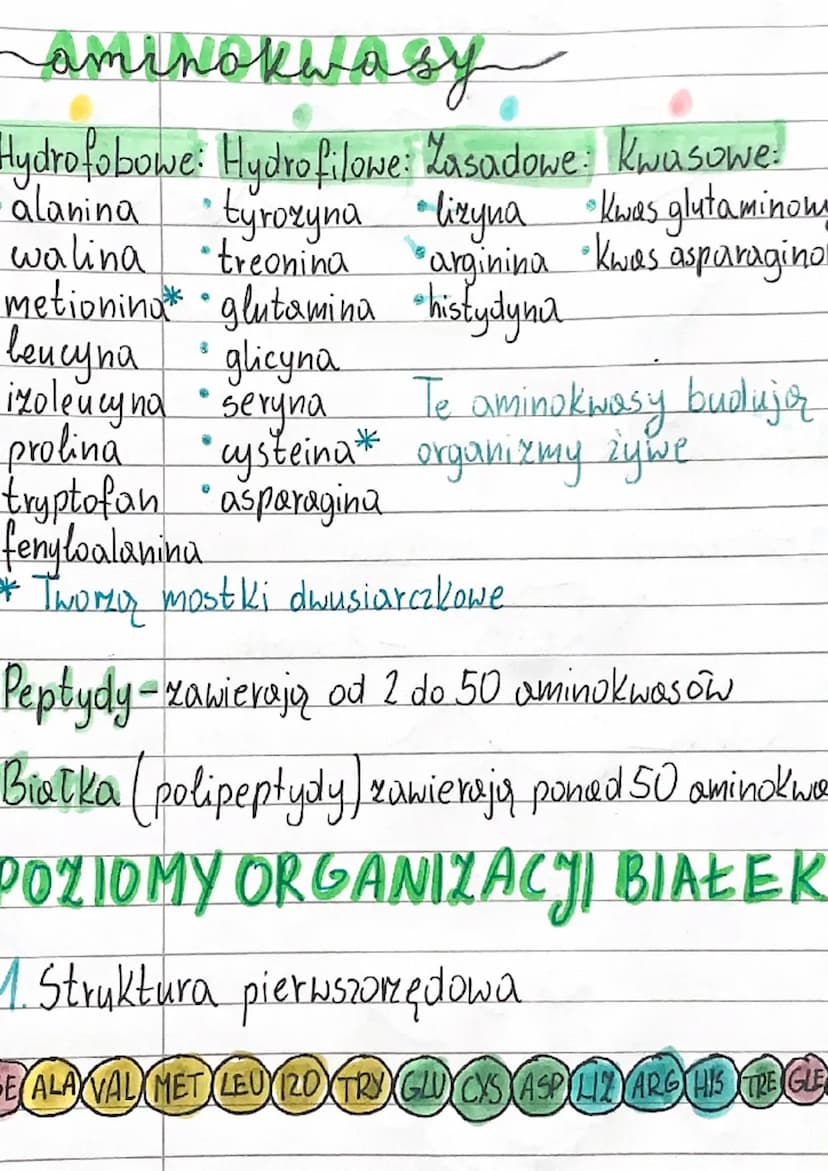 aminokwasy
Hydrofobowe: Hydrofilowe: Zasadowe: Kwasowe:
alanina • tyrozyna • lizyna • kwas glutaminow
walina • treonina • arginina • kwas asparagino
metionina* • glutamina • histydyna
leucyna • glicyna
izoleucyna • seryna Te aminokwasy budują
prolina • cysteina* organizmy żywe
tryptofan • asparagina
fenyloalanina
* Tworzą mostki dwusiarczkowe
Peptydy - zawierają od 2 do 50 aminokwasów
Białka (polipeptydy) zawierają ponad 50 aminokwa
POZIOMY ORGANIZACJI BIAŁEK
1. Struktura pierwszorzędowa
E ALA VAL MET LEU IZO TRY GLU CYS ASP LIZ ARG HIS TRE GLE